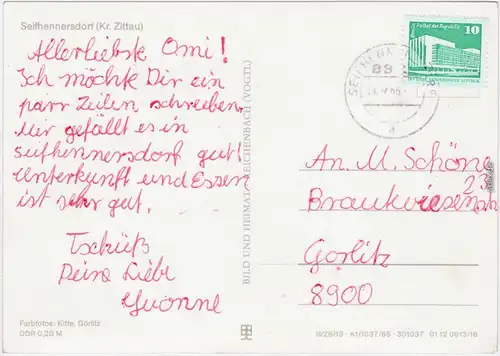 Seifhennersdorf (Kr. Zittau)
Allerliebste Omi!
Ich möchte Dir ein
parr Zeilen schreiben,
Mir gefällt es in
seifhennersdorf gut!
Unterkunft und Essen
ist sehr gut.
Tschüß
Deine Liebe
Yvonne
Farbfotos: Kitte, Görlitz
DDR 0,20 M
BILD UND HEIMAT REICHENBACH (VOGTL)
10
Palast der Republik
An. M. Schöne
23
Görlitz
8900
IV/26/13 · A1/1037/85 · 301037 01 12 0913/16